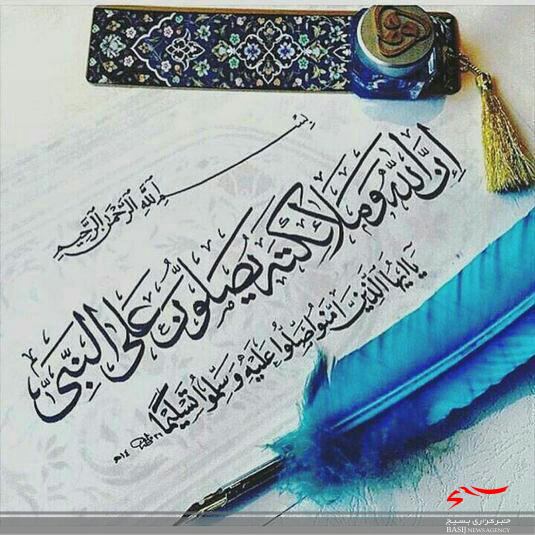 بسم الله الرحمن الرحيم
إن الله وملائكته يصلون على النبي
يا أيها الذين آمنوا صلوا عليه وسلموا تسليما
بسیج
خبرگزاری بسیج
BASIJ NEWS AGENCY